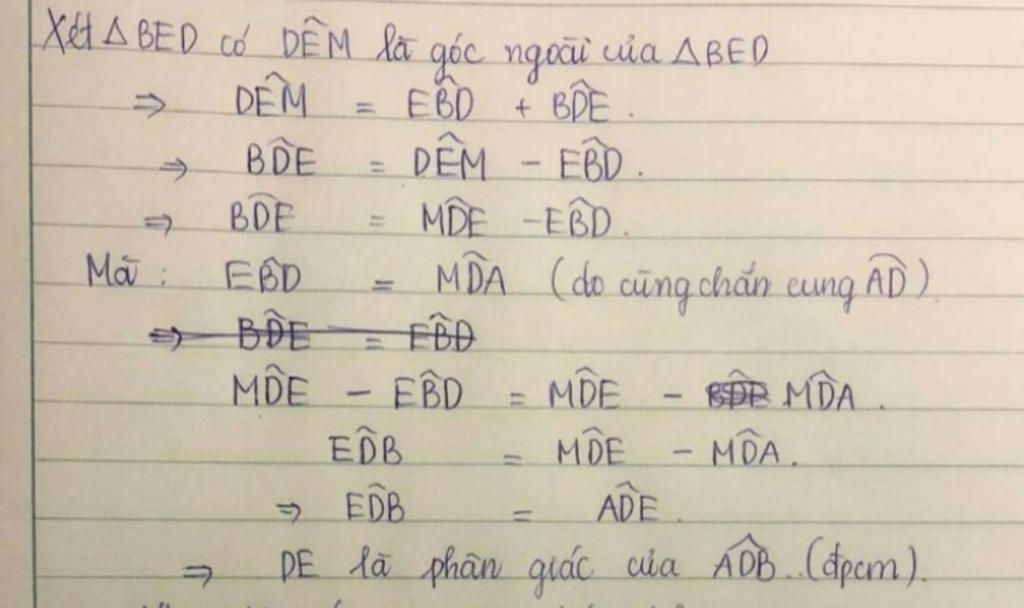 Xét △BED có DÊM là góc ngoài của △BED
⇒ DÊM = EB̂D + BD̂E.
⇒ BD̂E = DÊM - EB̂D.
⇒ BD̂E = MD̂E - EB̂D.
Mà: EB̂D = MD̂A (do cùng chắn cung A͡D)
⇒ BD̂E = EB̂D
MD̂E - EB̂D = MD̂E - BD̂E MD̂A.
ED̂B = MD̂E - MD̂A.
⇒ ED̂B = AD̂E.
⇒ DE là phân giác của AD̂B. (đpcm).